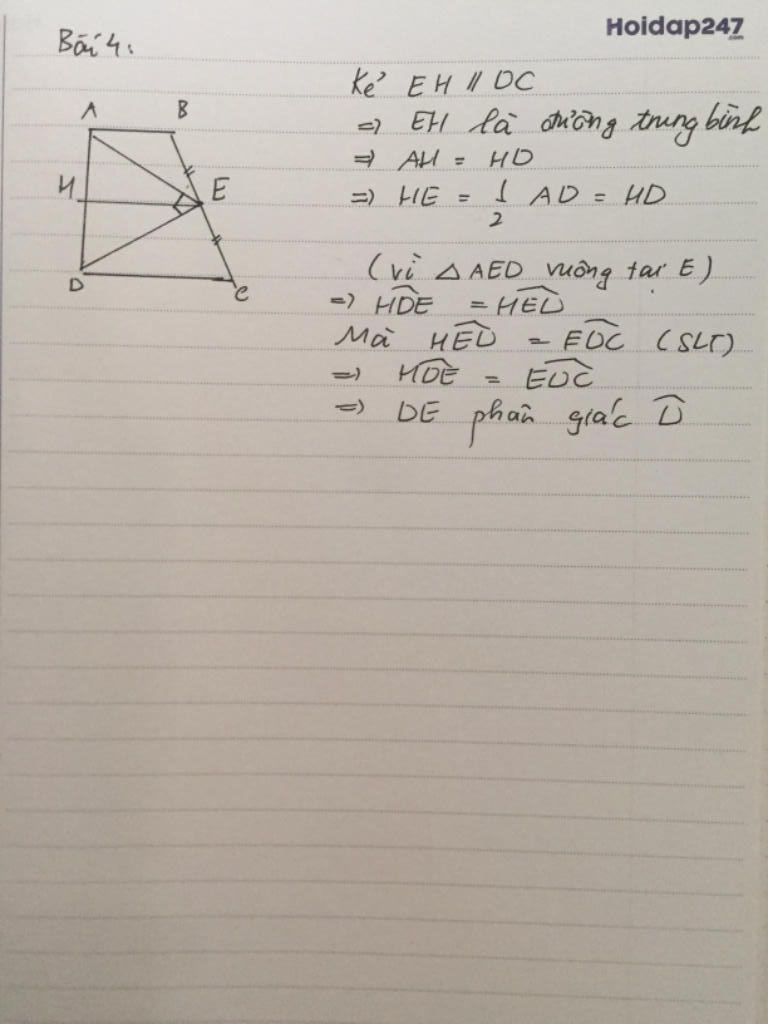 Hoidap247
.com
Bài 4:
A B
H E
D C
Kẻ EH // DC
=> EH là đường trung bình
=> AH = HD
=> HE = 1/2 AD = HD
(vì △AED vuông tại E)
=> \widehat{HDE} = \widehat{HED}
Mà \widehat{HED} = \widehat{EDC} (SLT)
=> \widehat{HDE} = \widehat{EDC}
=> DE phân giác \widehat{D}